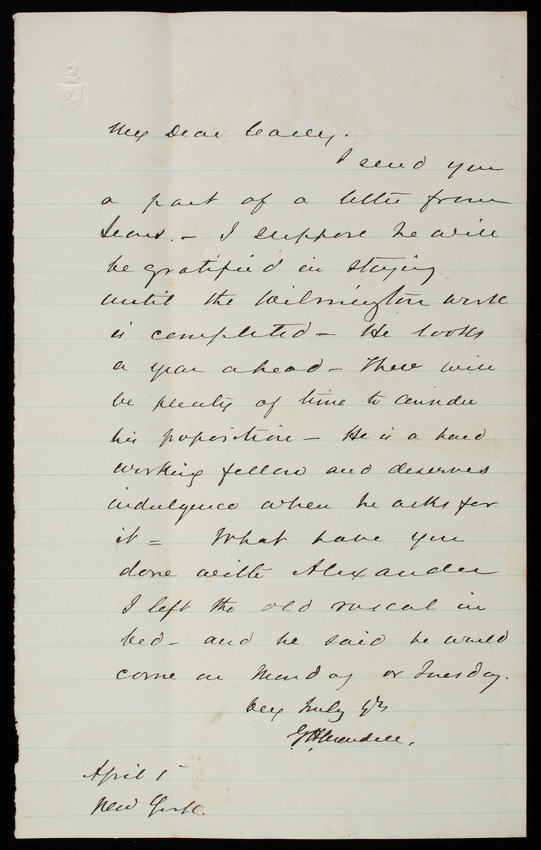 My Dear Casey.
I send you
a part of a letter from
Sears. – I suppose he will
be gratified in staying
until the Wilmington work
is completed – He looks
a year ahead – There will
be plenty of time to consider
his proposition – He is a hard
working fellow and deserves
indulgence when he asks for
it = What have you
done with Alexander
I left the old rascal in
bed – and he said he would
come on Monday or Tuesday.
Very truly yrs
G H Mendell,
April 1
New York.